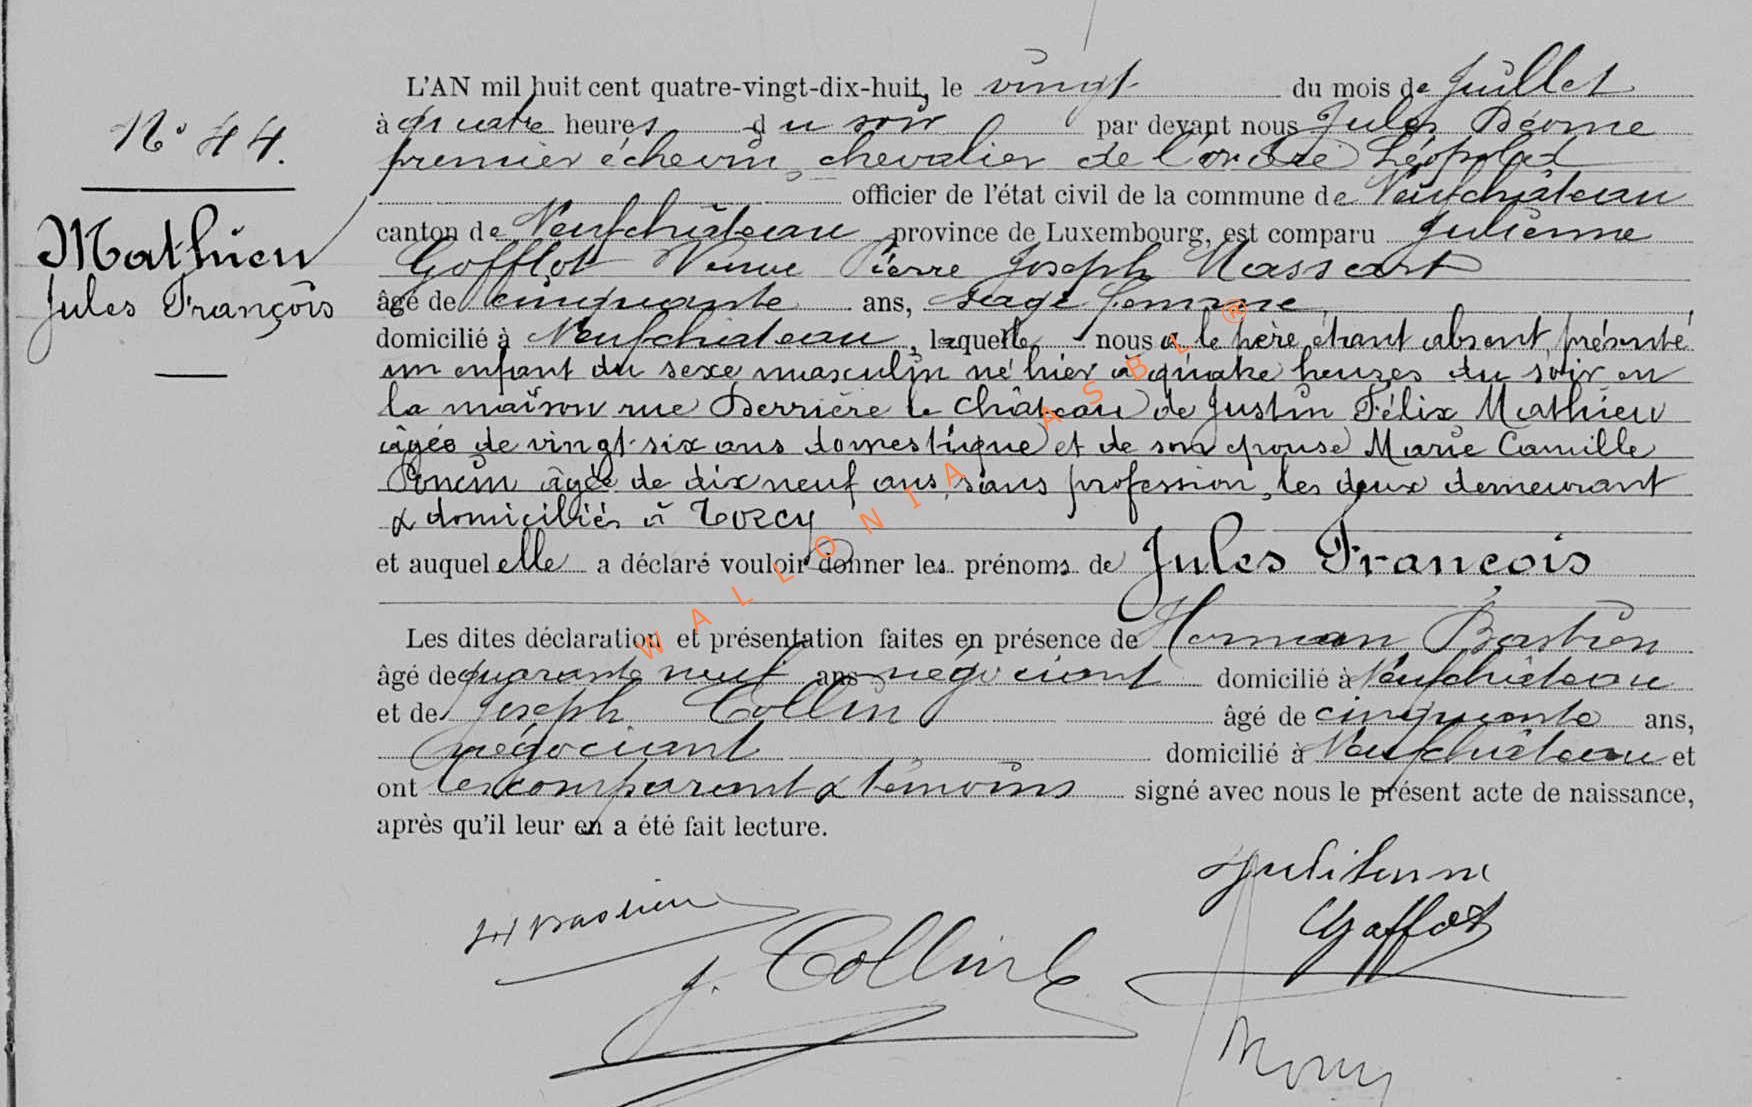 N° 44.
Mathieu
Jules François
L'AN mil huit cent quatre-vingt-dix-huit, le vingt du mois de Juillet
à quatre heures du soir par devant nous Jules
premier échevin, chevalier de l'ordre Léopold
officier de l'état civil de la commune de Neufchâteau
canton de Neufchâteau province de Luxembourg, est comparu Julienne
Gofflot Veuve Pierre Joseph Massart
âgé de cinquante ans, sage femme
domicilié à Neufchâteau, laquelle nous a, le père étant absent, présenté
un enfant du sexe masculin né hier à quatre heures du soir en
la maison rue Derrière le Château de Justin Félix Mathieu
âgée de vingt-six ans domestique et de son épouse Marie Camille
Poncin âgée de dix neuf ans, sans profession, les deux demeurant
& domiciliés à Torcy
et auquel elle a déclaré vouloir donner les prénoms de Jules François
Les dites déclaration et présentation faites en présence de Herman Bastien
âgé de quarante neuf ans négociant domicilié à Neufchâteau
et de Joseph Collin âgé de cinquante ans,
négociant domicilié à Neufchâteau et
ont les comparant & témoins signé avec nous le présent acte de naissance,
après qu'il leur en a été fait lecture.
Julienne
H Bastien
Gofflot
J. Collin
WALLONIA ASBL ®